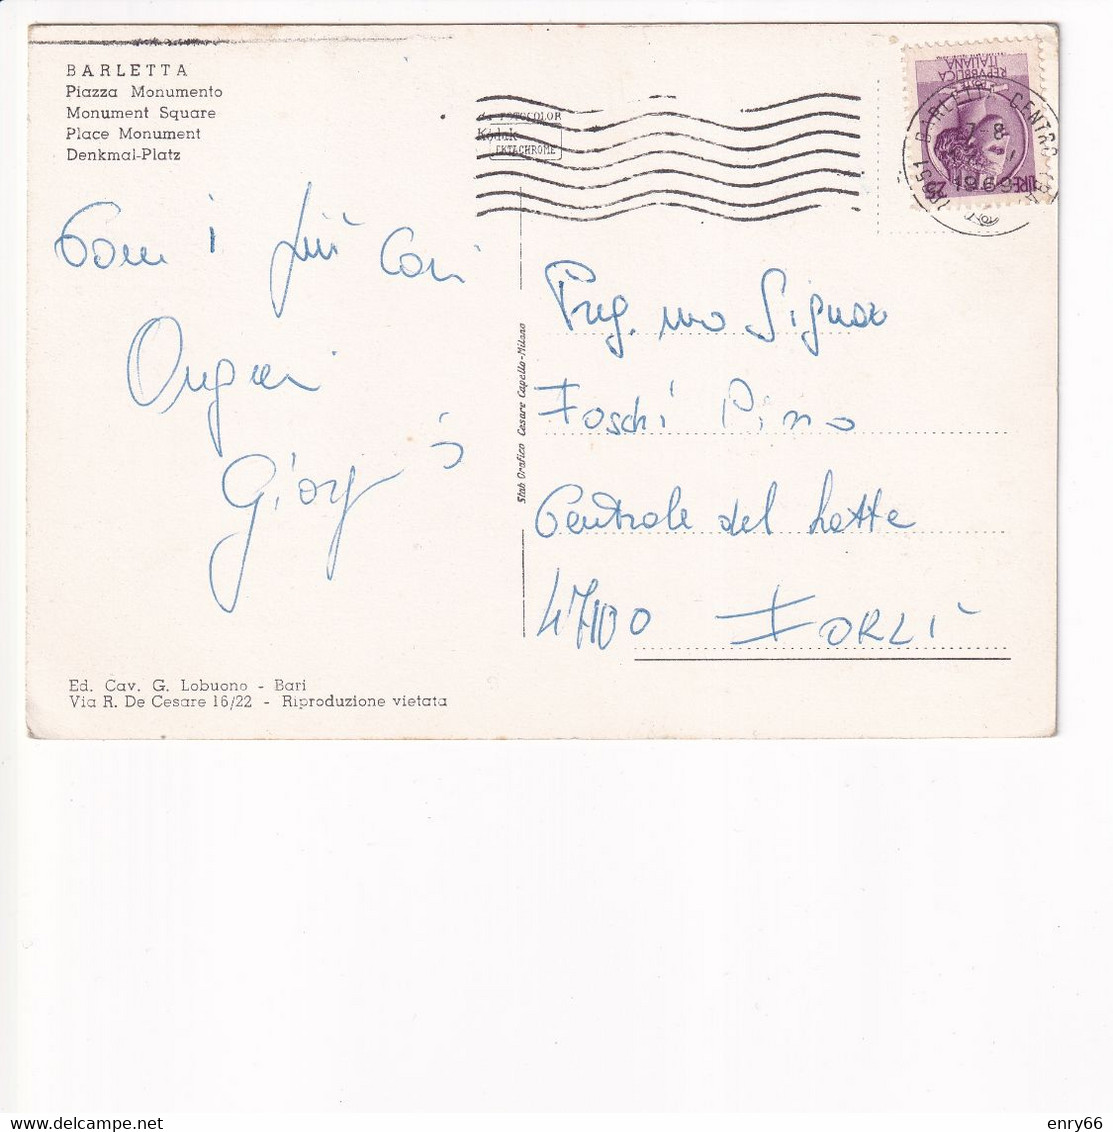 BARLETTA
Piazza Monumento
Monument Square
Place Monument
Denkmal-Platz
FOTOCOLOR
Kodak
EKTACHROME
REPVBBLICA
ITALIANA
LIRE 25
BARLETTA CENTRO
7-8
196
Con i più Cari
Auguri
Giorgio
Preg.mo Signor
Foschi Pino
Centrale del Latte
47100 FORLI'
Stab Grafico Cesare Capello-Milano
Ed. Cav. G. Lobuono - Bari
Via R. De Cesare 16/22 - Riproduzione vietata
enry66